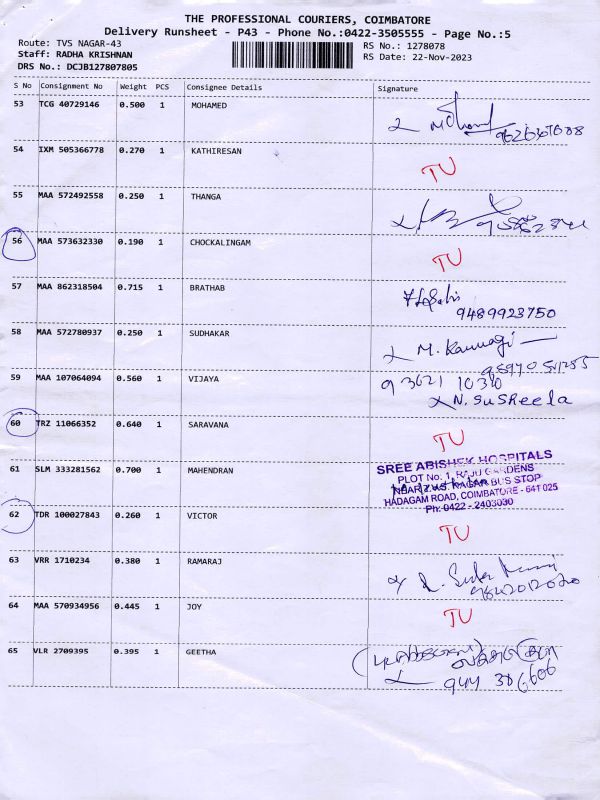 THE PROFESSIONAL COURIERS, COIMBATORE
Delivery Runsheet - P43 - Phone No.:0422-3505555 - Page No.:5
Route: TVS NAGAR-43 RS No.: 1278078
Staff: RADHA KRISHNAN RS Date: 22-Nov-2023
DRS No.: DCJB127807805
S No Consignment No Weight PCS Consignee Details Signature
53 TCG 40729146 0.500 1 MOHAMED
54 IXM 505366778 0.270 1 KATHIRESAN TU
55 MAA 572492558 0.250 1 THANGA
56 MAA 573632330 0.190 1 CHOCKALINGAM TU
57 MAA 862318504 0.715 1 BRATHAB
9489923750
58 MAA 572780937 0.250 1 SUDHAKAR M. Kannagi
59 MAA 107064094 0.560 1 VIJAYA 93621 10310
N. Susheela
60 TRZ 11066352 0.640 1 SARAVANA TU
61 SLM 333281562 0.700 1 MAHENDRAN SREE ABISHEK HOSPITALS
PLOT No: 1, RAJU GARDENS
NEAR T.V.S. NAGAR BUS STOP
HADAGAM ROAD, COIMBATORE - 641 025
Ph: 0422 - 2403030
62 TDR 100027843 0.260 1 VICTOR TU
63 VRR 1710234 0.380 1 RAMARAJ
64 MAA 570934956 0.445 1 JOY TU
65 VLR 2709395 0.395 1 GEETHA